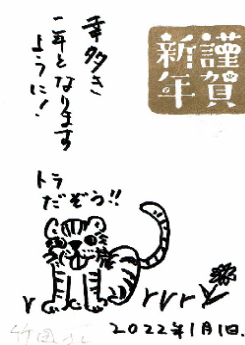 謹賀
新年
幸多き
一年となります
ように!
トラ
だぞう!!
2022年1月1日.